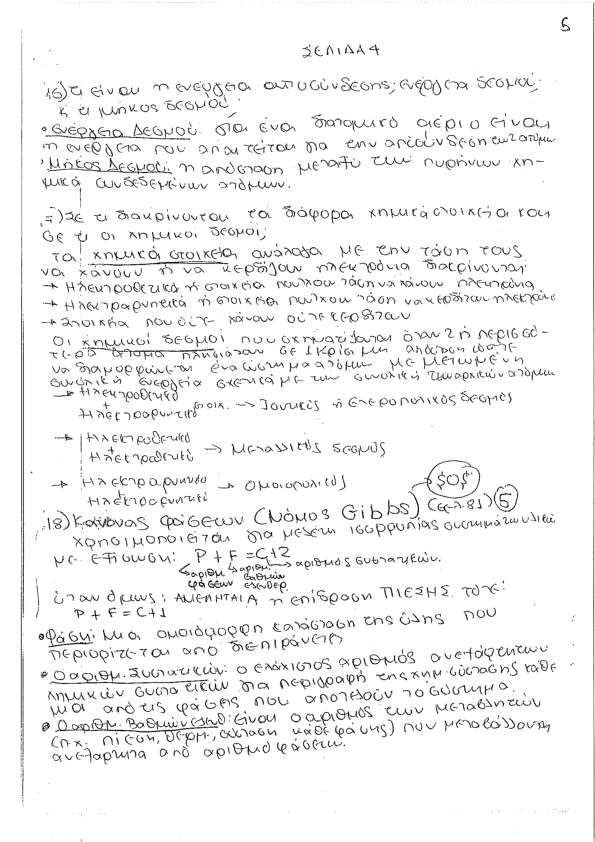 5
ΣΕΛΙΔΑ 4
16) τι είναι η ενέργεια αποσύνδεσης; ενέργεια δεσμού;
κ τι μήκος δεσμού;
• Ενέργεια Δεσμού: για ένα διατομικό αέριο είναι
η ενέργεια που απαιτείται για την αποσύνδεση των 2 ατόμων
• Μήκος Δεσμού: η απόσταση μεταξύ των πυρήνων χη-
μικά συνδεδεμένων ατόμων.
Σε τι διακρίνονται τα διάφορα χημικά στοιχεία και
σε τι οι χημικοί δεσμοί;
τα χημικά στοιχεία ανάλογα με την τάση τους
να χάνουν ή να κερδίζουν ηλεκτρόνια διακρίνονται:
→ Ηλεκτροθετικά ή στοιχεία που έχουν τάση να χάνουν ηλεκτρόνια
→ Ηλεκτραρνητικά ή στοιχεία που έχουν τάση να κερδίζουν ηλεκτρόνια
→ Στοιχεία που ούτε χάνουν ούτε κερδίζουν
Οι χημικοί δεσμοί που σχηματίζονται όταν 2 ή περισσό-
τερα άτομα πλησιάσουν σε 1 κρίσιμη απόσταση ώστε
να διαμορφώνεται ένα σύστημα ατόμων με μειωμένη
συνολική ενέργεια σχετικά με την συνολική των αρχικών ατόμων
→ Ηλεκτροθετικό
+ στοιχ. → Ιοντικός ή Ετεροπολικός δεσμός
Ηλεκτραρνητικό
→ Ηλεκτροθετικό
+ → Μεταλλικός δεσμός
Ηλεκτροθετικό
→ Ηλεκτραρνητικό → Ομοιοπολικός
+
Ηλεκτραρνητικό
$OS
18) Κανόνας φάσεων (Νόμος Gibbs) (σελ. 81) 5
χρησιμοποιείται για μελέτη ισορροπίας συστημάτων υλικών
με εξίσωση: P + F = C + 2
αριθμ. φάσεων
αριθμ. βαθμών ελευθερ.
αριθμός συστατικών.
όταν όμως: ΑΜΕΛΗΤΑΙΑ η επίδραση ΠΙΕΣΗΣ τότε:
P + F = C + 1
• Φάση: Μια ομοιόμορφη κατάσταση της ύλης που
περιορίζεται από διεπιφάνεια
• Ο αριθμ. Συστατικών: ο ελάχιστος αριθμός ανεξάρτητων
χημικών συστατικών για περιγραφή της χημ. σύστασης κάθε
μιας από τις φάσεις που αποτελούν το σύστημα.
• Ο αριθμ. Βαθμών ελευθ: είναι ο αριθμός των μεταβλητών
(π.χ. πίεση, θερμ., σύσταση κάθε φάσης) που μεταβάλλονται
ανεξάρτητα από αριθμό φάσεων.